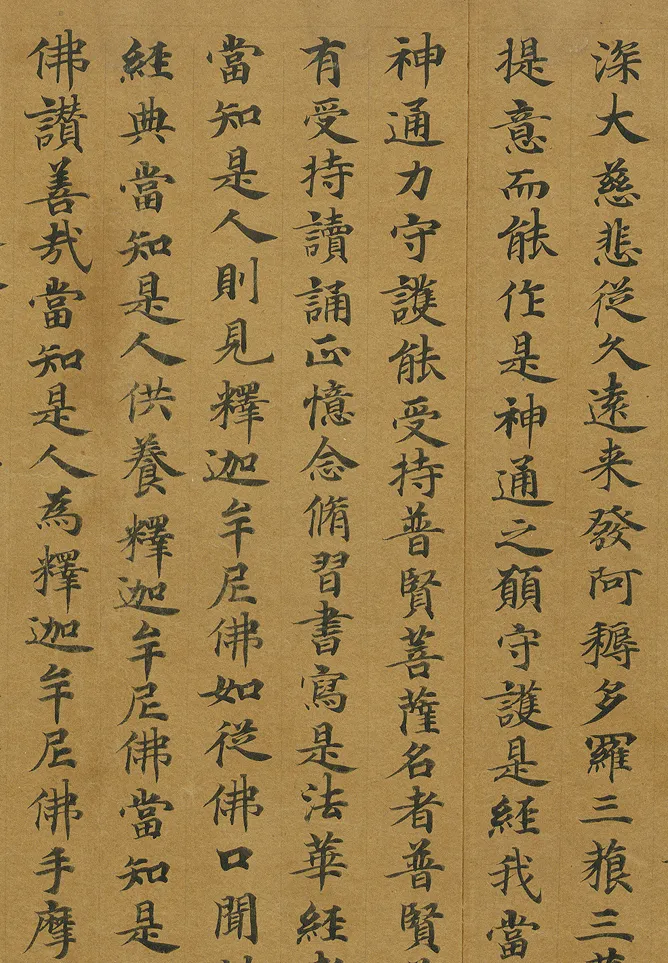 深大慈悲從久遠来發阿耨多羅三藐三
提意而能作是神通之願守護是經我當
神通力守護能受持普賢菩薩名者普賢
有受持讀誦正憶念脩習書寫是法華經
當知是人則見釋迦牟尼佛如從佛口聞
經典當知是人供養釋迦牟尼佛當知是
佛讃善哉當知是人為釋迦牟尼佛手摩